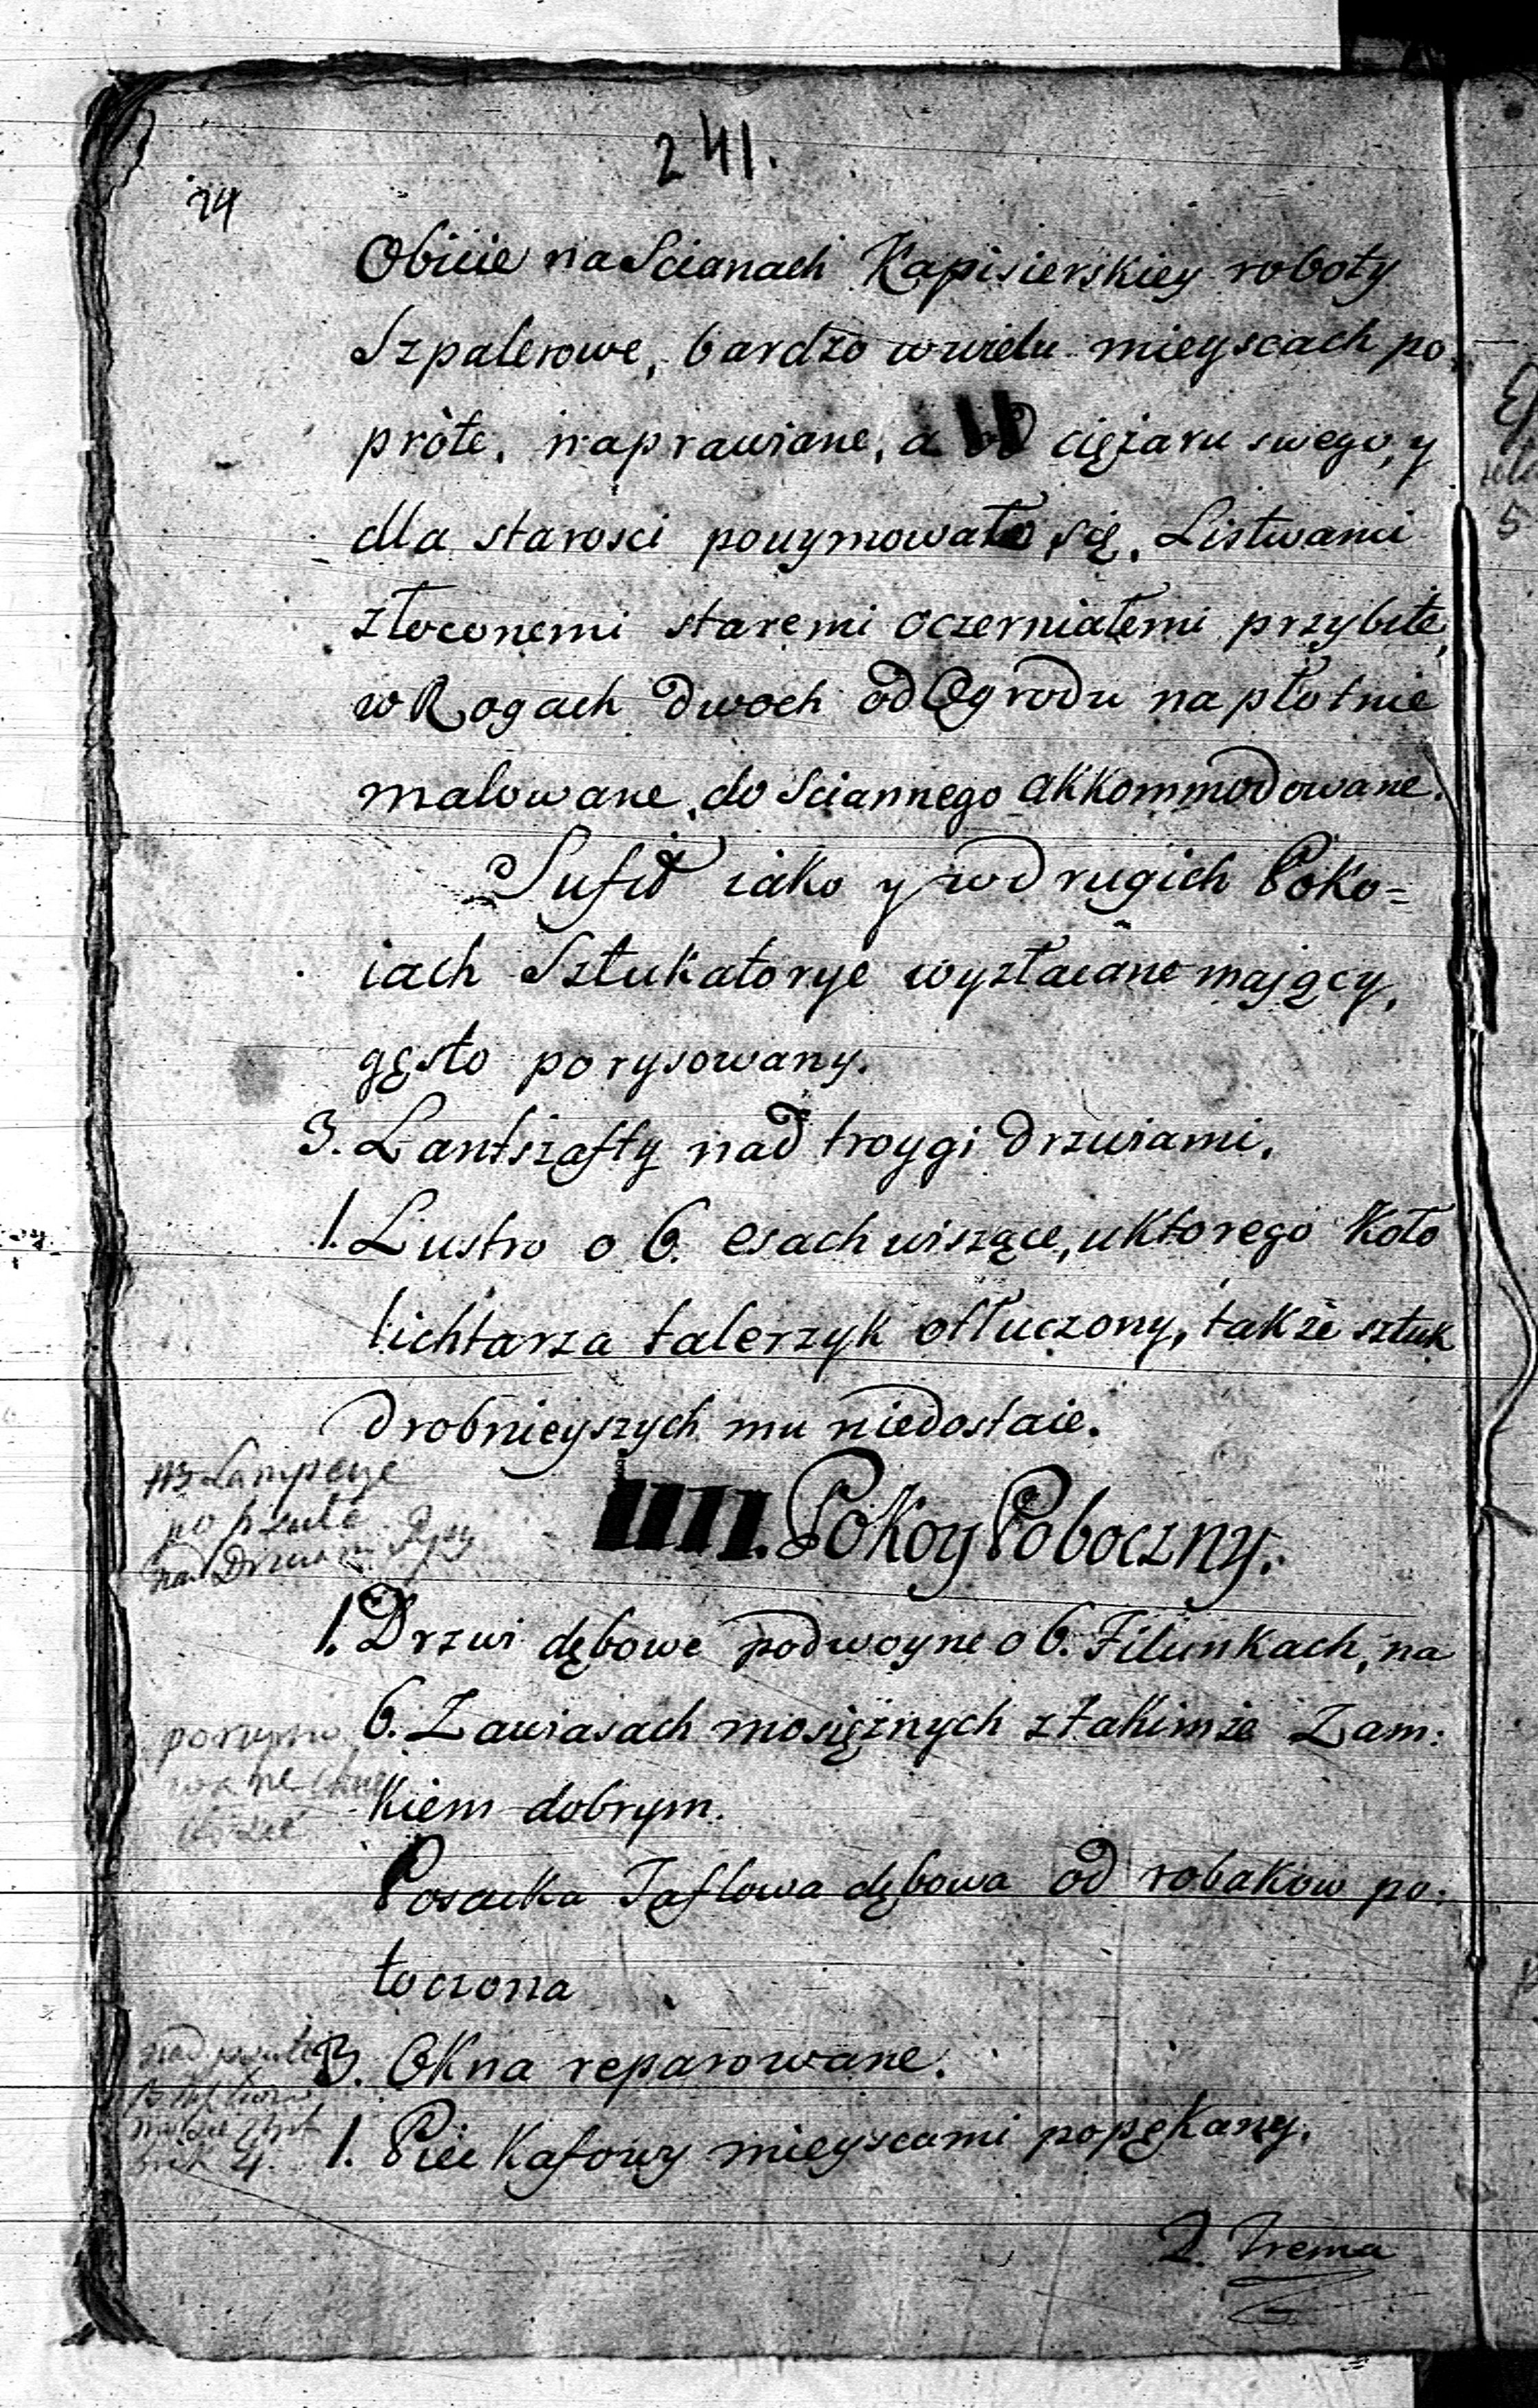 241.
24
Obicie na Scianach Kapisierskiey roboty
Szpalerowe, bardzo w wielu mieyscach po
próte, naprawiane, a od ciężaru swego, y
dla starosci pouymowało się, Listwami
złoconemi staremi oczerniałemi przybite,
w Rogach dwoch od Ogrodu na płotnie
malowane, do Sciannego akkommodowane.
Sufit iako y w drugich Poko=
iach Sztukatorye wyzłacane mający,
gęsto porysowany.
3. Lantszafty nad troygi drzwiami.
1. Lustro o 6. esach wiszące, u ktorego Koło
lichtarza talerzyk otłuczony, także sztuk
drobnieyszych mu niedostaie.
#3 Lamperye
popsute
nad Drzwiami
IIII. Pokoy Poboczny.
1. Drzwi dębowe podwoyne o 6. Filunkach, na
6. Zawiasach mosiężnych z takimże Zam:
kiem dobrym.
Posacka Taflowa dębowa od robakow po:
toczona
3. Okna reparowane.
1. Piec Kaflowy mieyscami popękany.
2. Trema